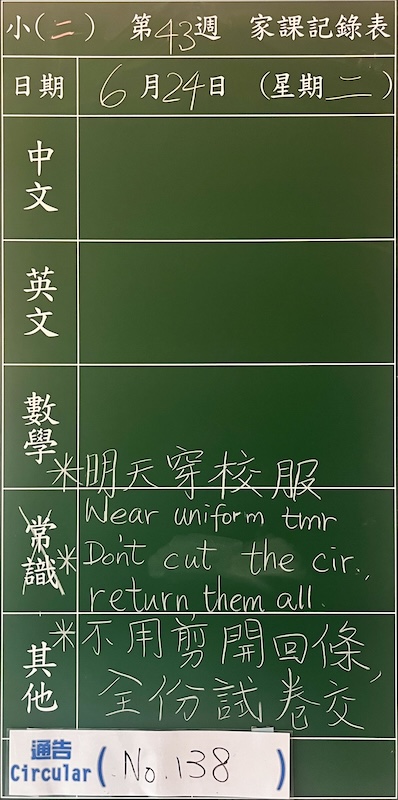 小(二) 第43週 家課記錄表
日期 6月24日 (星期二)
中文
英文
數學
*明天穿校服
Wear uniform tmr
常識
*Don't cut the cir.,
return them all.
其他
*不用剪開回條,
全份試卷交
通告
Circular ( No.138 )